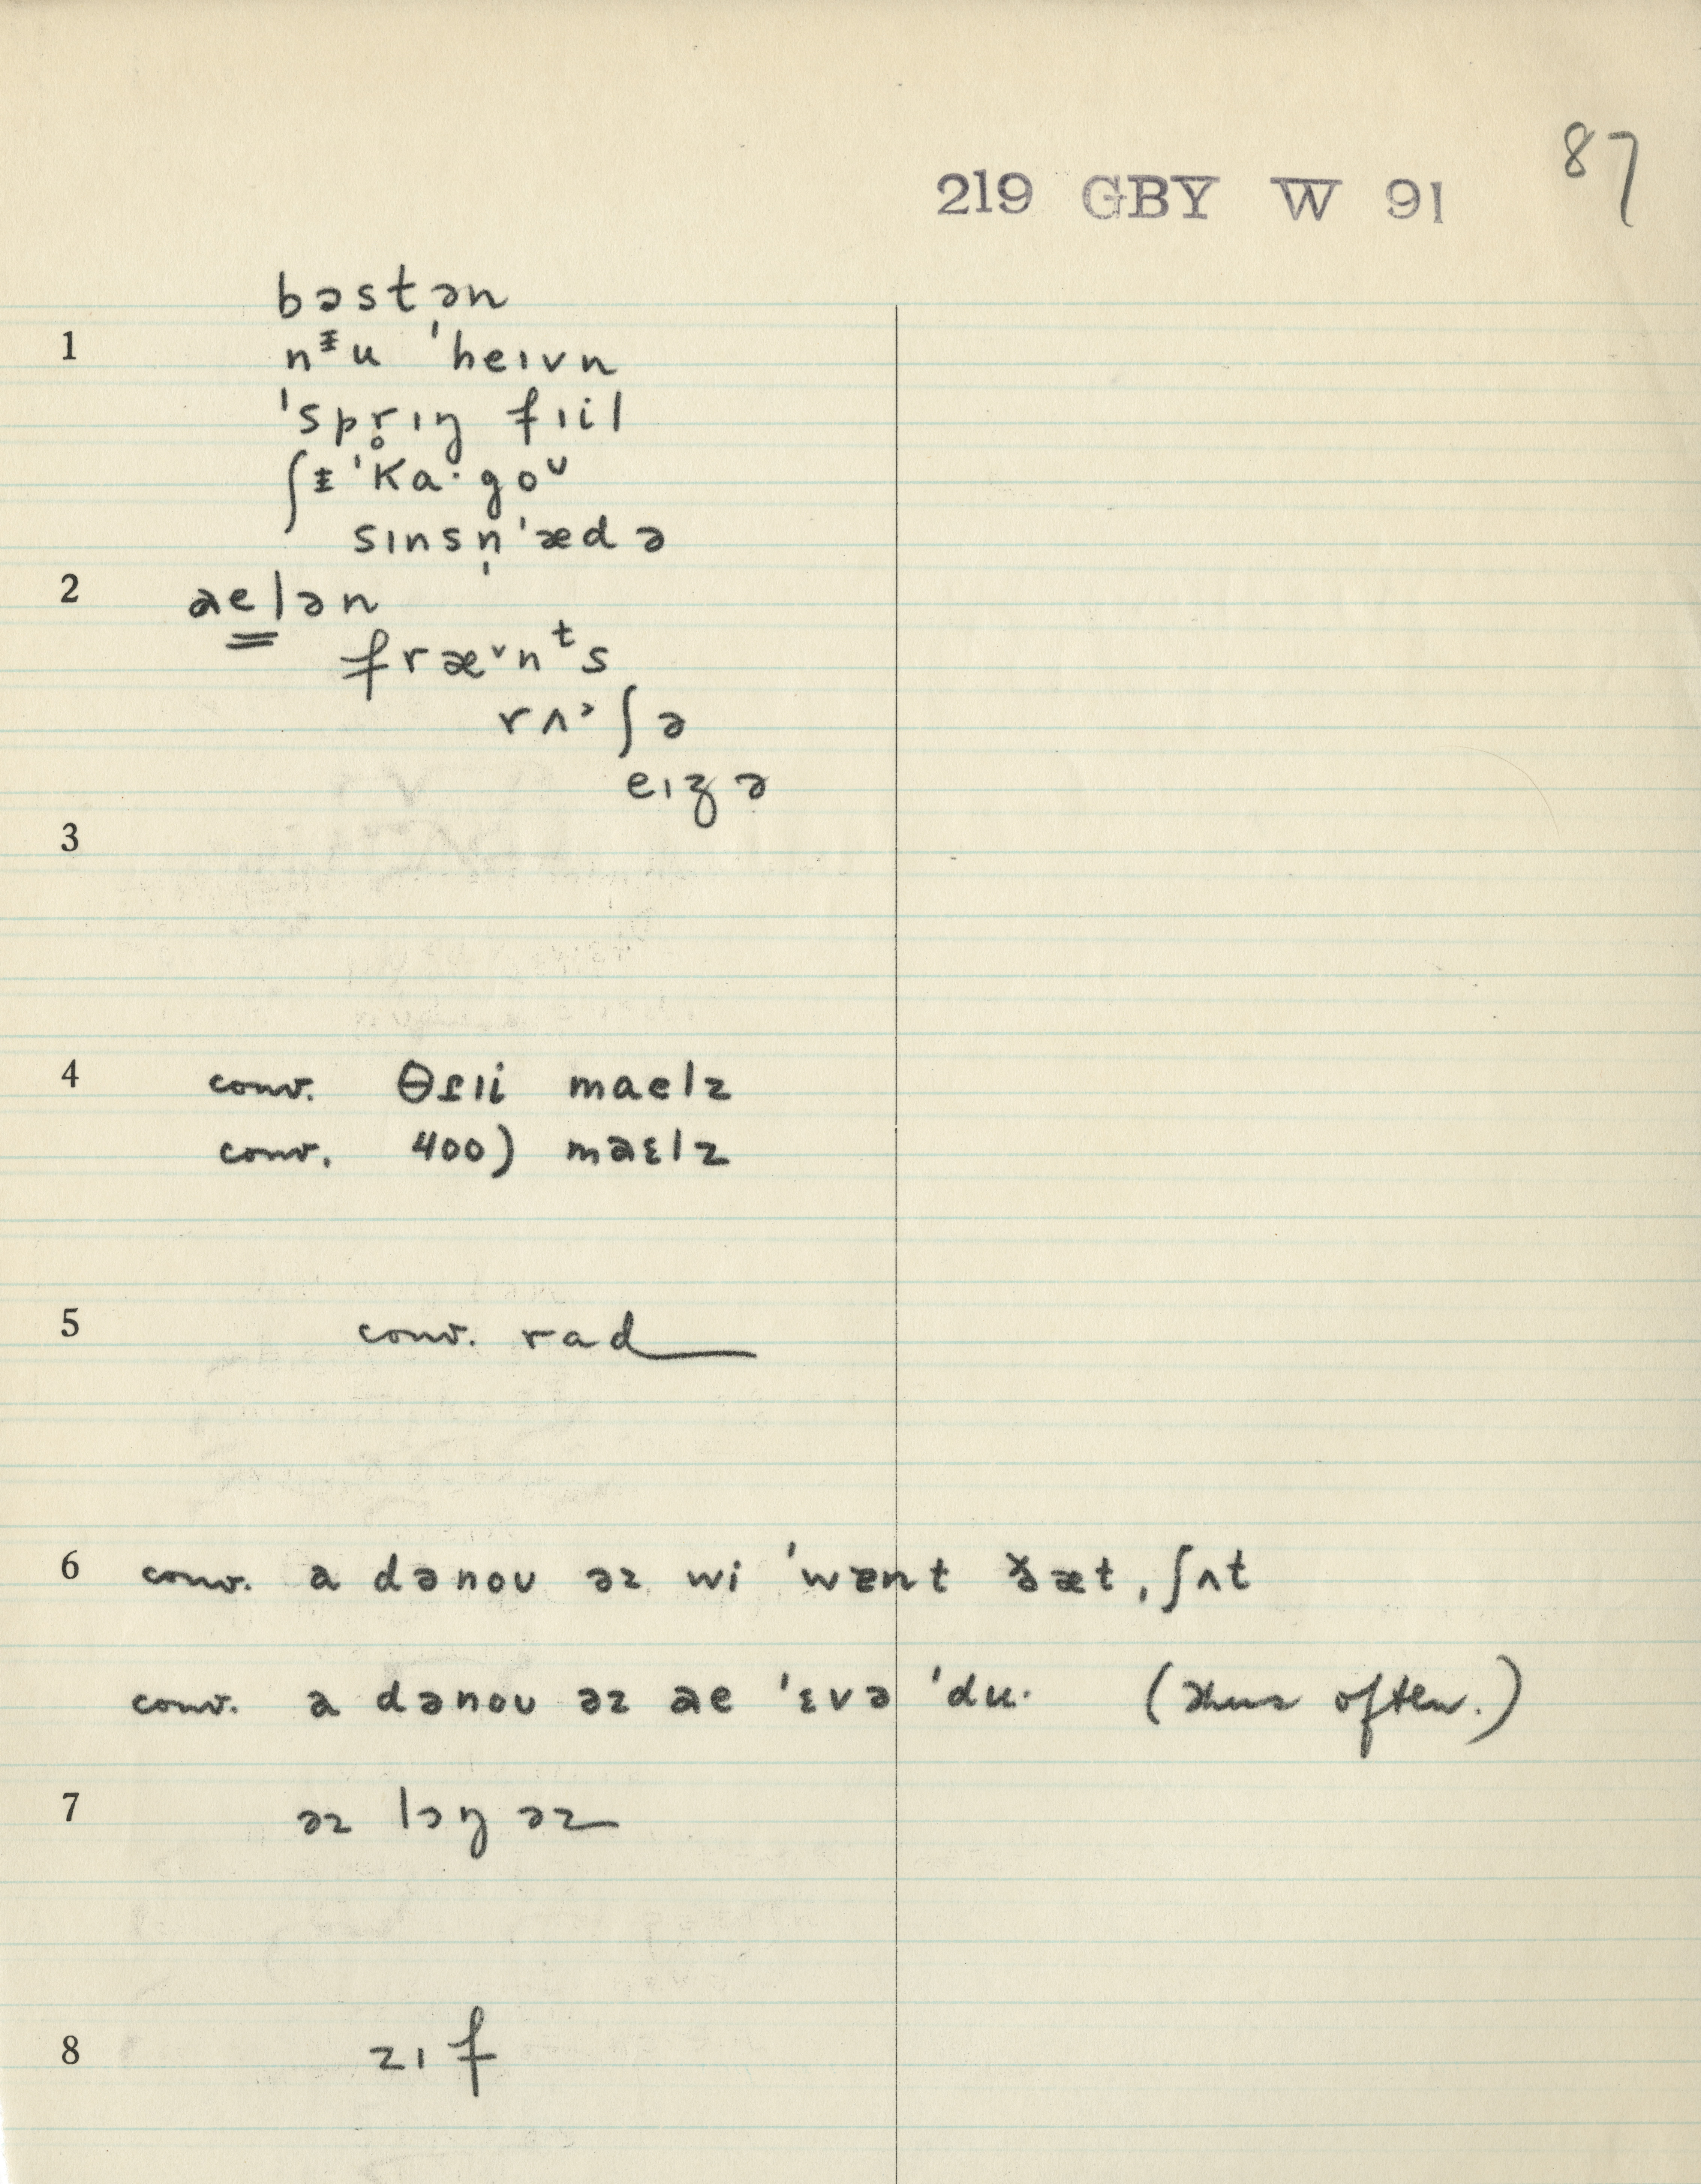 87
219 GBY W 91
bəstən
1 nᵻu ˈheɪvn
ˈspr̥ɪŋ fɪil
ʃᵻˈka·goᴜ
sɪnsn̩ˈædə
2 aelən
frævnᵗs
rʌ˒ʃə
eɪʒə
3
4 conv. θɾɪi maelz
conv. 400) maɛlz
5 conv. rad
6 conv. a dənoʊ əz wi ˈwɐnt ðæt, ʃʌt
conv. a dənoʊ əz ae ˈɛvə ˈdu· (thus often.)
7 əz lɔŋ əz
8 zɪf